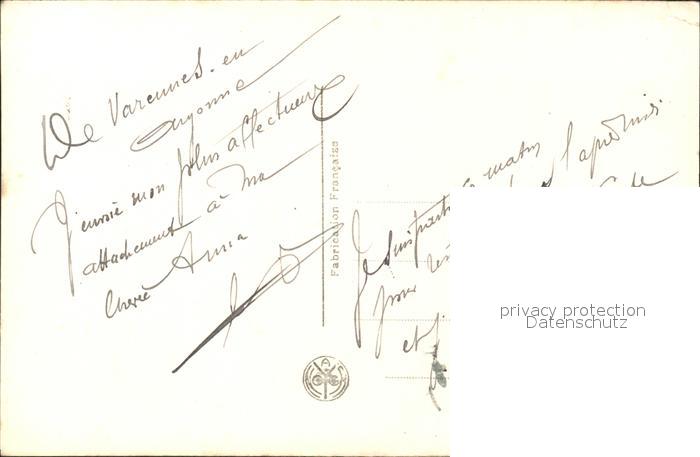 De Varennes-en
Argonne
J'envoie mon plus affectueux
attachement à ma
cheree Anna
Fabrication Française
ce matin
l'après midi
Je suis parti
pour
et j'
privacy protection
Datenschutz